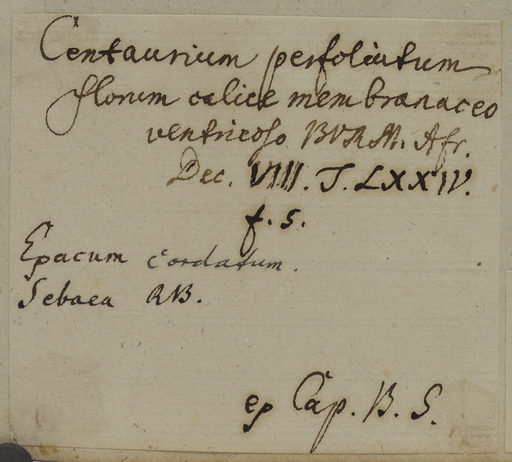 Centaurium perfoliatum
florum calice membranaceo
ventricoso BURM. Afr.
Dec. VIII. T. LXXIV.
f. 5.
Epacum cordatum.
Sebaea RB.
ex Cap. B. S.